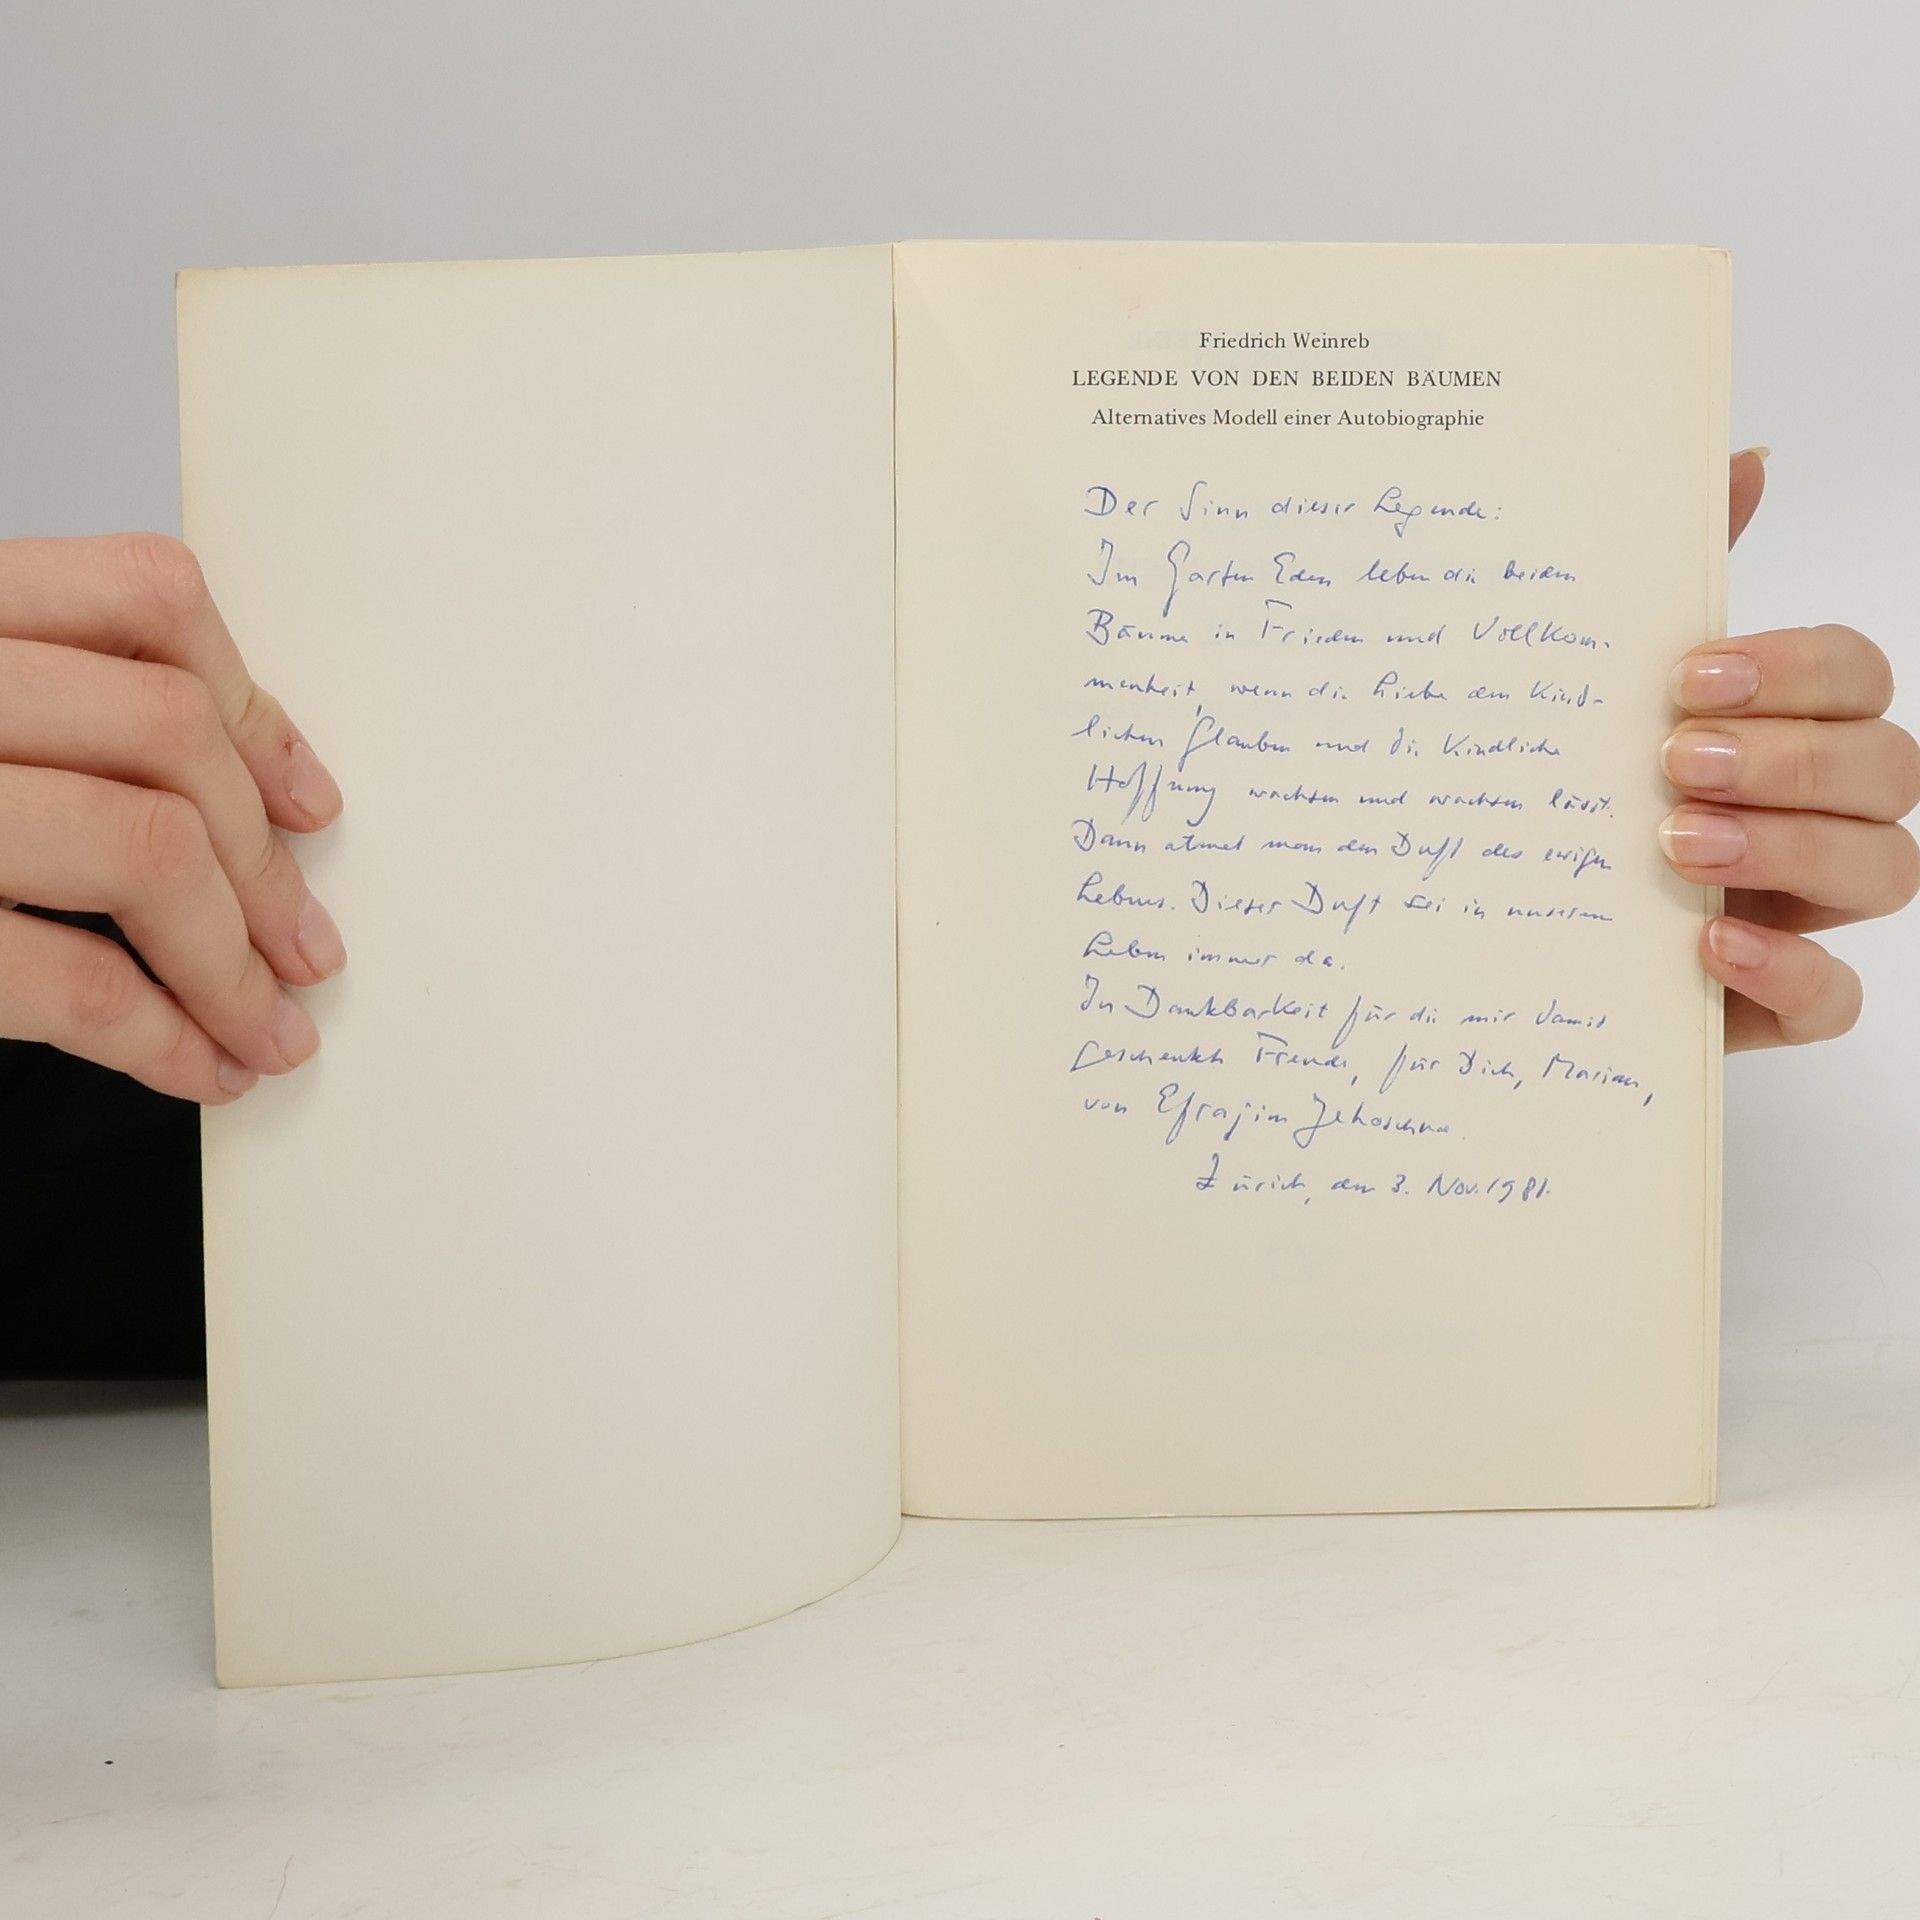 Friedrich Weinreb
LEGENDE VON DEN BEIDEN BÄUMEN
Alternatives Modell einer Autobiographie
Der Sinn dieser Legende:
Im Garten Eden leben die beiden
Bäume in Frieden und Vollkom-
menheit, wenn die Liebe den Kind-
lichen Glauben und die Kindliche
Hoffnung wachsen und wachsen lässt.
Dann atmet man den Duft des ewigen
Lebens. Dieser Duft sei in unserem
Leben immer da.
In Dankbarkeit für die mir damit
geschenkte Freude, für Dich, Marian,
von Efrajim Jehoschua.
Zürich, den 3. Nov. 1981.